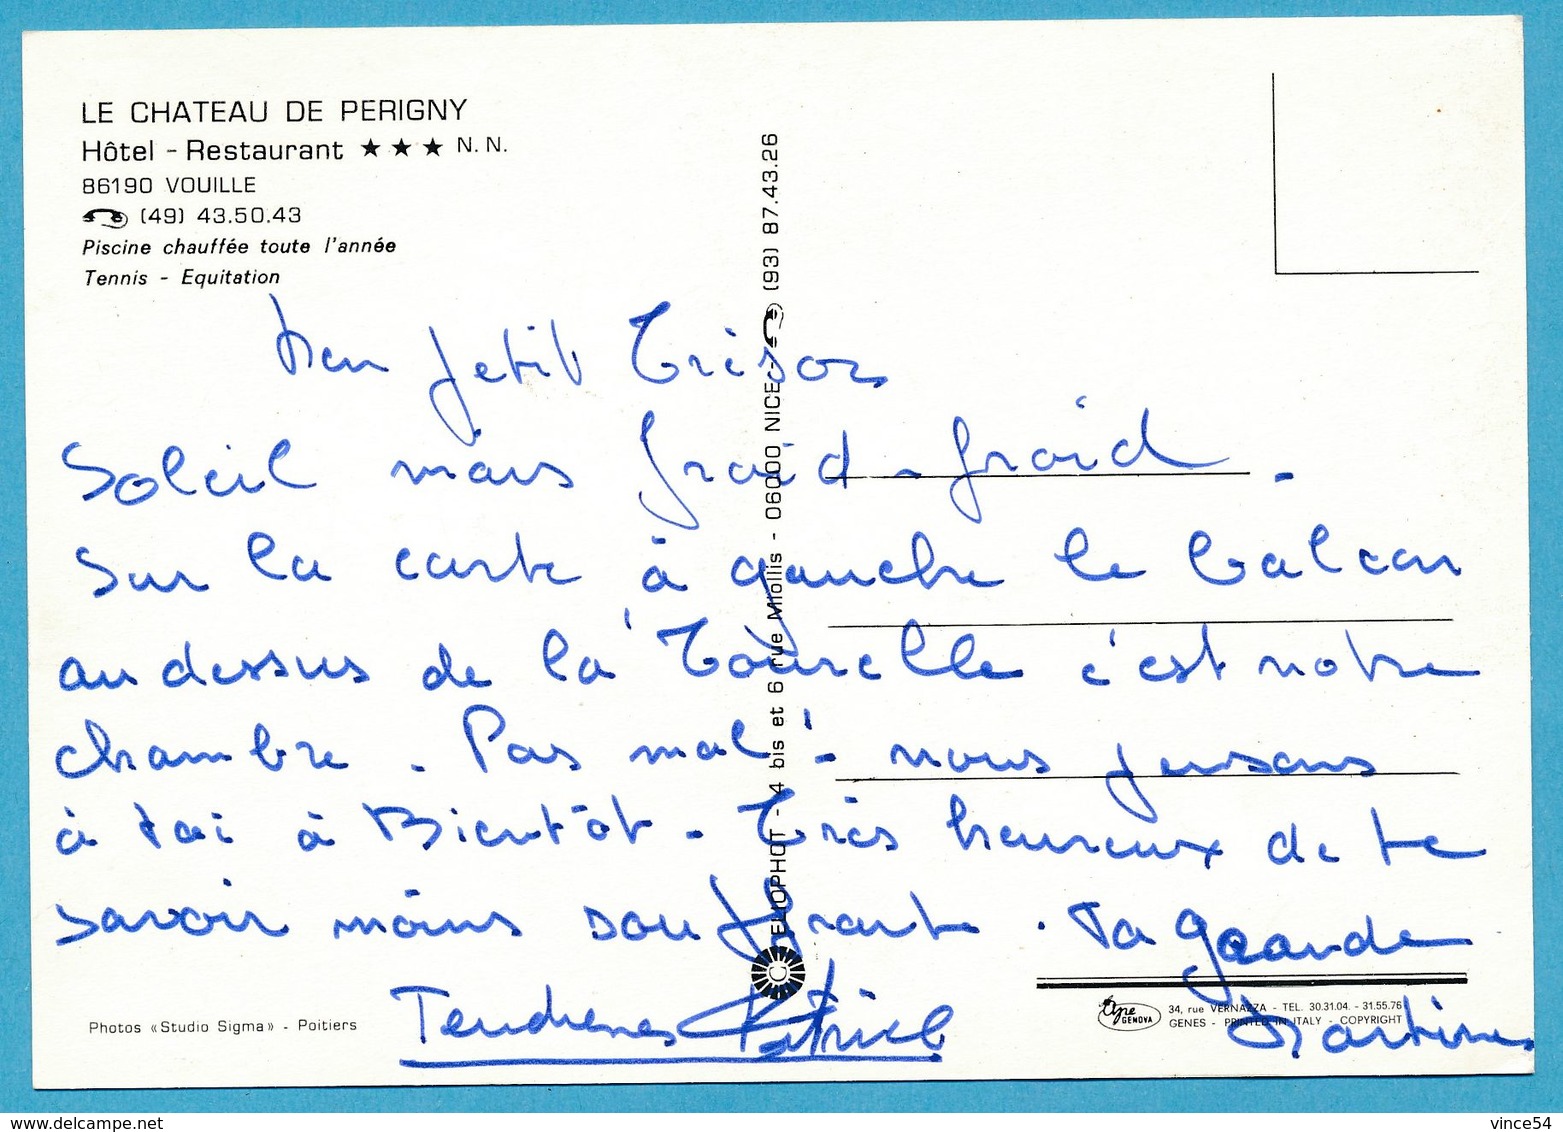 LE CHATEAU DE PERIGNY
Hôtel - Restaurant ★ ★ ★ N.N.
86190 VOUILLE
(49) 43.50.43
Piscine chauffée toute l'année
Tennis - Equitation
Mon petit Trésor
Soleil mais froid - froid -
Sur la carte à gauche le balcon
au dessus de la Tourelle c'est notre
chambre. Pas mal ! - nous pensons
à toi à Bientôt - Très heureux de te
savoir moins souffrante. Ta grande
Martine
Tendresses Patrick
Photos «Studio Sigma» - Poitiers
ELIOPHOT - 4 bis et 6 rue Miollis - 06000 NICE - (93) 87.43.26
GENOVA
34, rue VERNAZZA - TEL. 30.31.04. - 31.55.76
GENES - PRINTED IN ITALY - COPYRIGHT
www.delcampe.net
vince54